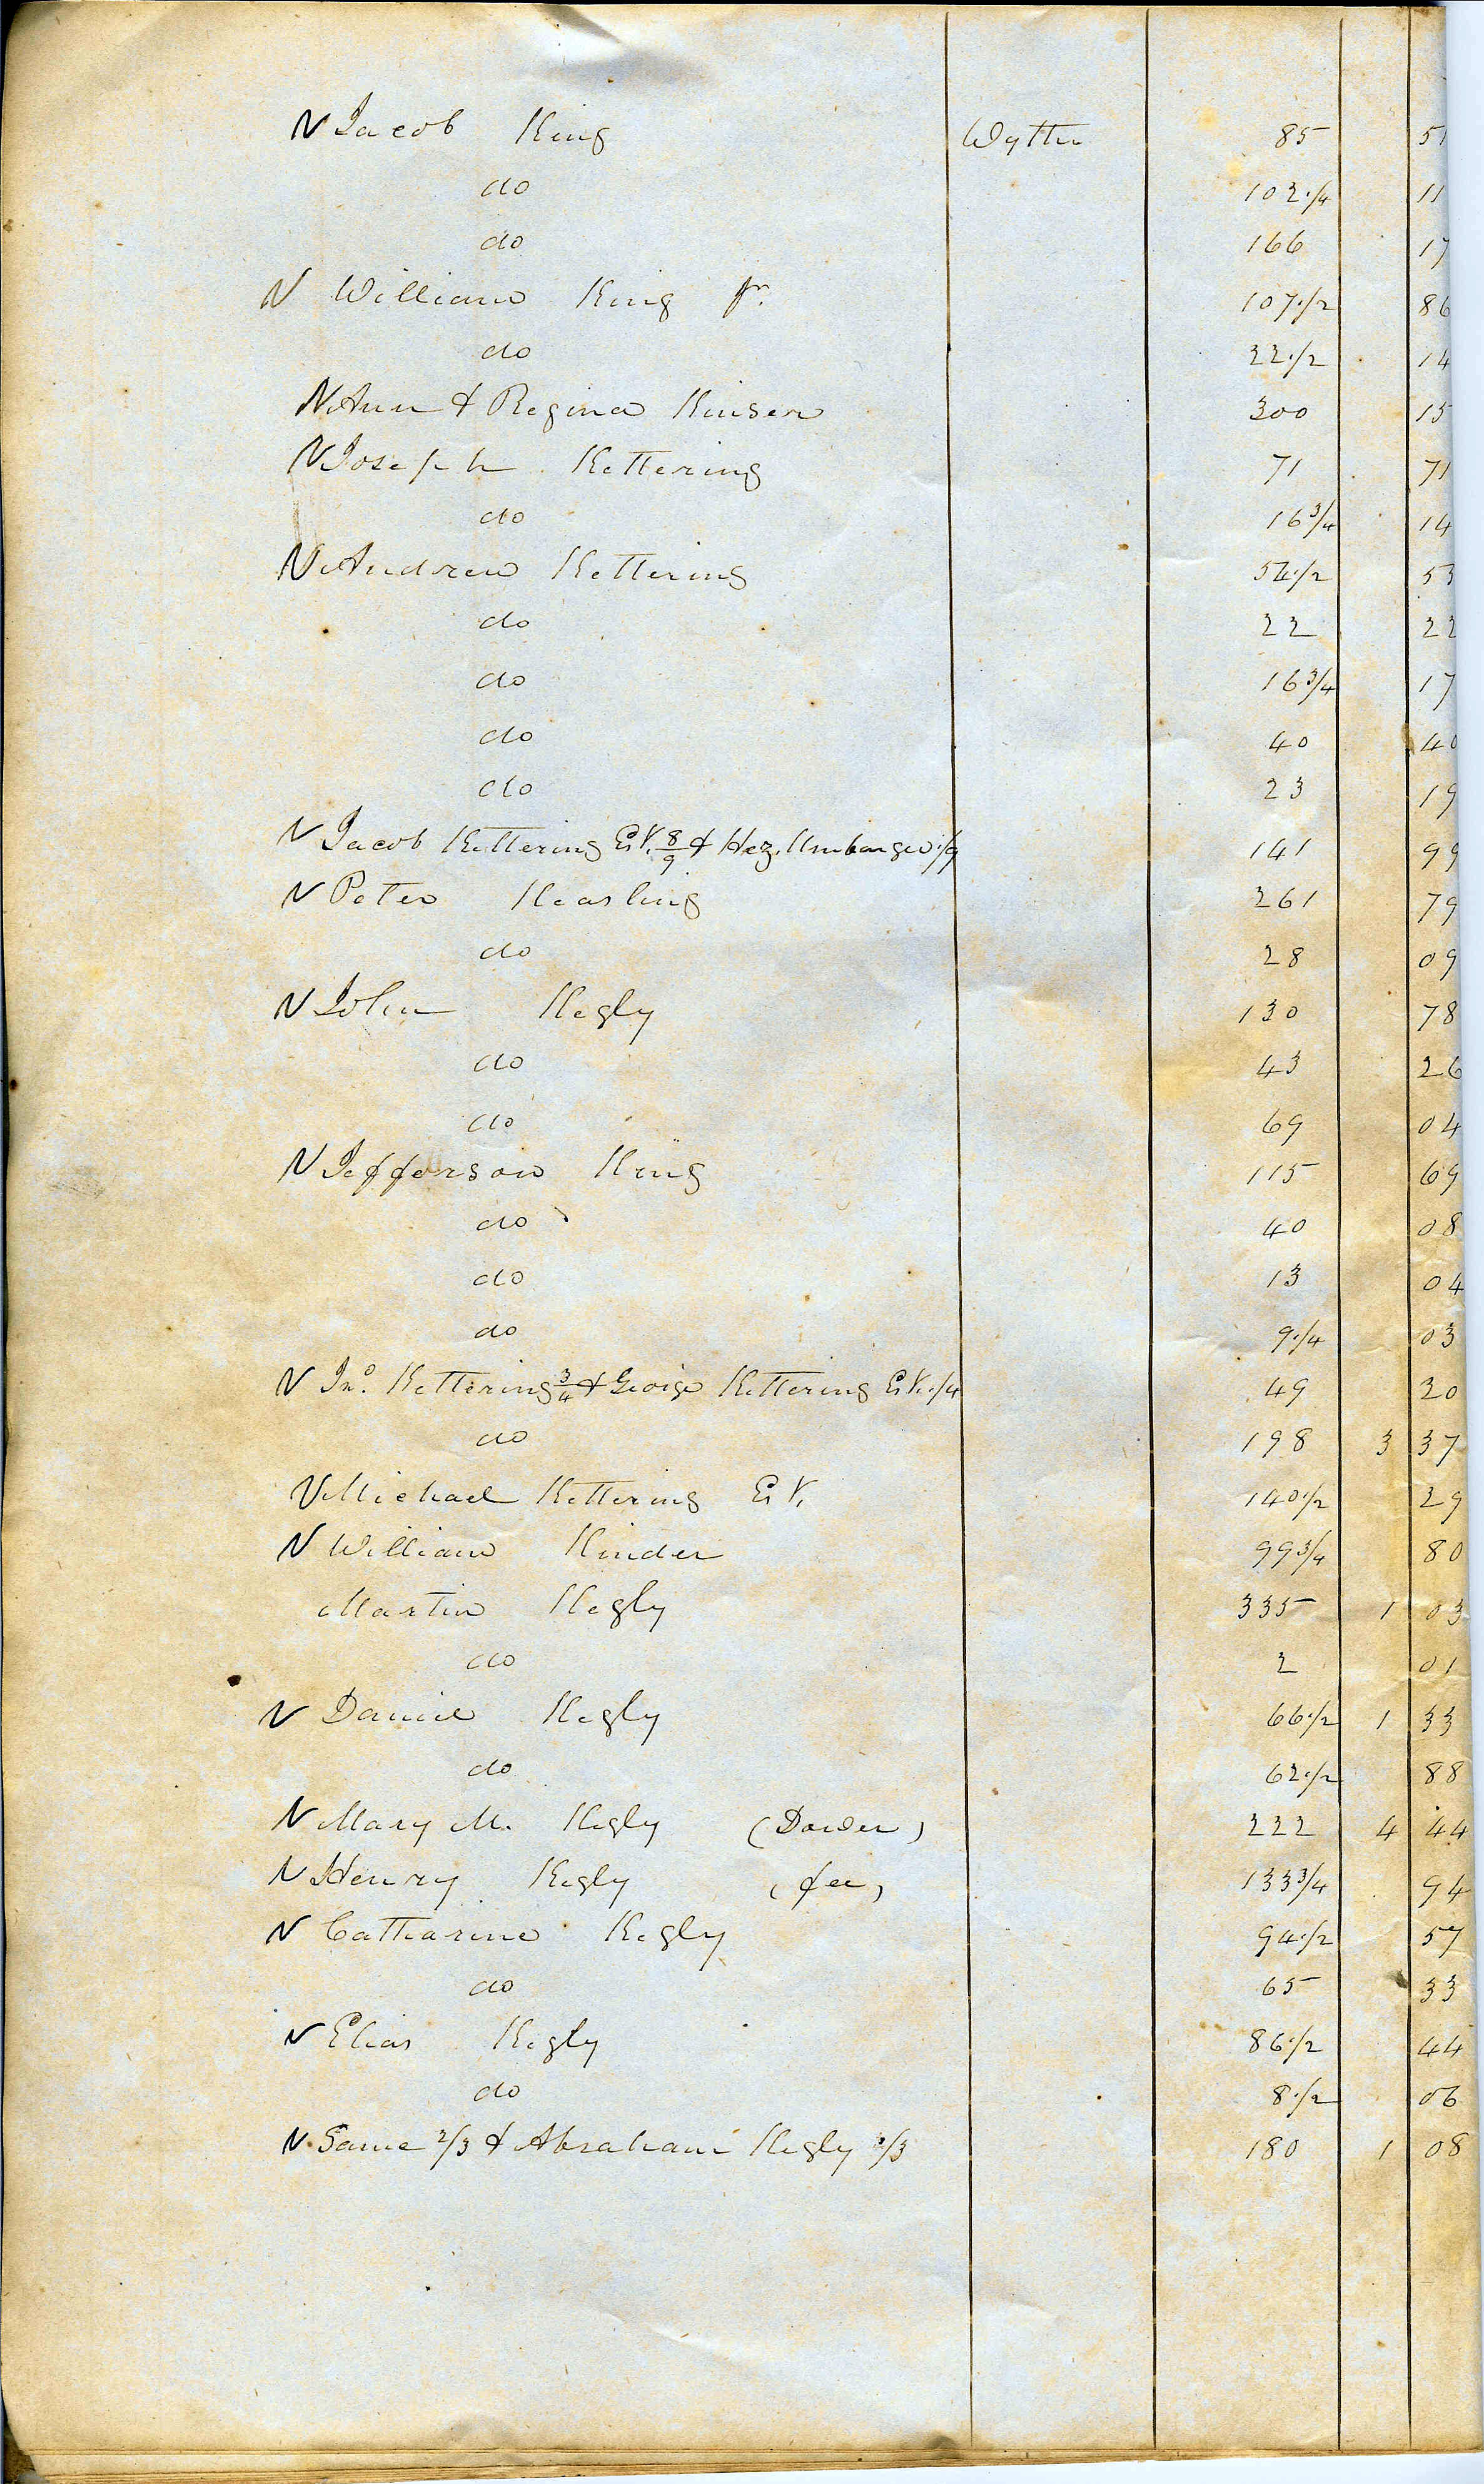 N Jacob King Wythe 85 51
do 102 1/4 11
do 166 17
N William King Jr. 107 1/2 86
do 22 1/2 14
N Ann & Regina Kinser 300 15
N Joseph Kettering 71 71
do 16 3/4 14
N Andrew Kettering 54 1/2 55
do 22 22
do 16 3/4 17
do 40 40
do 23 19
N Jacob Kettering Est. 8/9 & Hez. Umbarger 1/9 141 99
N Peter Keasling 261 79
do 28 09
N John Kegly 130 78
do 43 26
do 69 04
N Jefferson King 115 69
do 40 08
do 13 04
do 9 1/4 03
N Jno. Kettering 3/4 & George Kettering Est. 1/4 49 20
do 198 3 37
N Michael Kettering Est. 140 1/2 29
N William Kinder 99 3/4 80
Martin Kegly 335 1 03
do 2 01
N Daniel Kegly 66 1/2 1 33
do 62 1/2 88
N Mary M. Kegly (Dower) 222 4 44
N Henry Kegly (fee) 133 3/4 94
N Catharine Kegly 94 1/2 57
do 65 33
N Elias Kegly 86 1/2 44
do 8 1/2 06
N Same 2/3 & Abraham Kegly 1/3 180 1 08